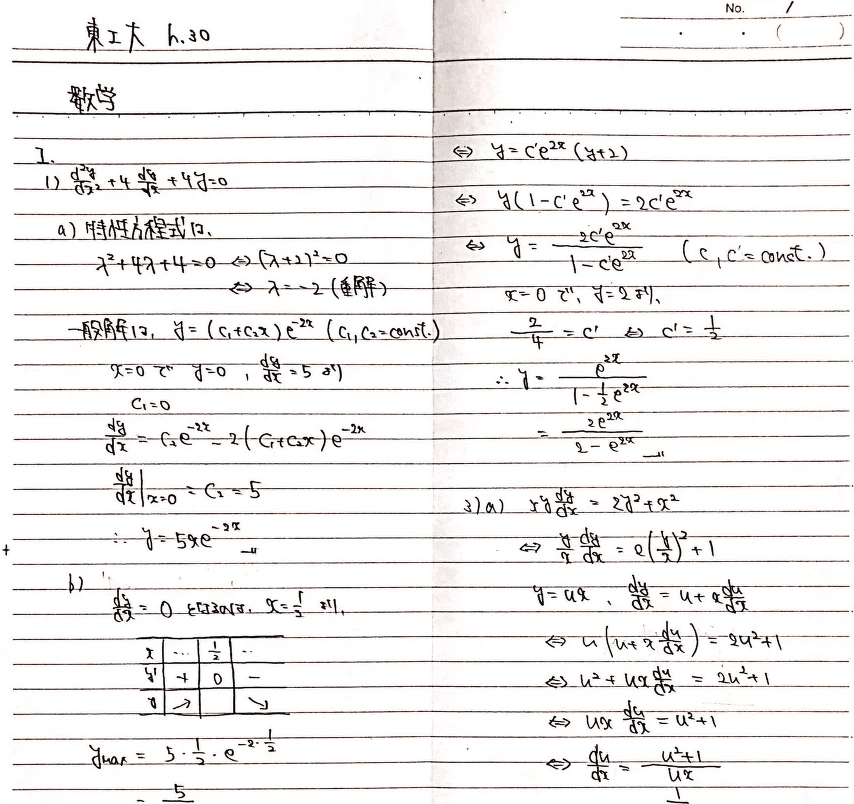 No. 1
東工大 h.30
数学
I.
1) d²y/dx² + 4 dy/dx + 4y = 0
a) 特性方程式は、
λ²+4λ+4=0 ⇔ (λ+2)²=0
⇔ λ=-2 (重解)
一般解は, y = (C₁+C₂x)e^{-2x} (C₁,C₂=const.)
x=0 で y=0, dy/dx = 5 より
C₁=0
dy/dx = C₂e^{-2x} - 2(C₁+C₂x)e^{-2x}
dy/dx|_{x=0} = C₂ = 5
∴ y = 5xe^{-2x}
b)
dy/dx = 0 となるのは, x = 1/2 より,
x … 1/2 …
y' + 0 -
y ↗ ↘
y_{max} = 5・1/2・e^{-2・1/2}
= 5
⇔ y = C'e^{2x}(y+2)
⇔ y(1-C'e^{2x}) = 2C'e^{2x}
⇔ y = 2C'e^{2x}/(1-C'e^{2x}) (C, C'=const.)
x=0 で, y=2 より,
2/4 = C' ⇔ C' = 1/2
∴ y = e^{2x}/(1-1/2 e^{2x})
= 2e^{2x}/(2-e^{2x})
3) a) xy dy/dx = 2y²+x²
⇔ y/x dy/dx = 2(y/x)²+1
y=ux, dy/dx = u+x du/dx
⇔ u(u+x du/dx) = 2u²+1
⇔ u²+ux du/dx = 2u²+1
⇔ ux du/dx = u²+1
⇔ du/dx = (u²+1)/(ux)
1